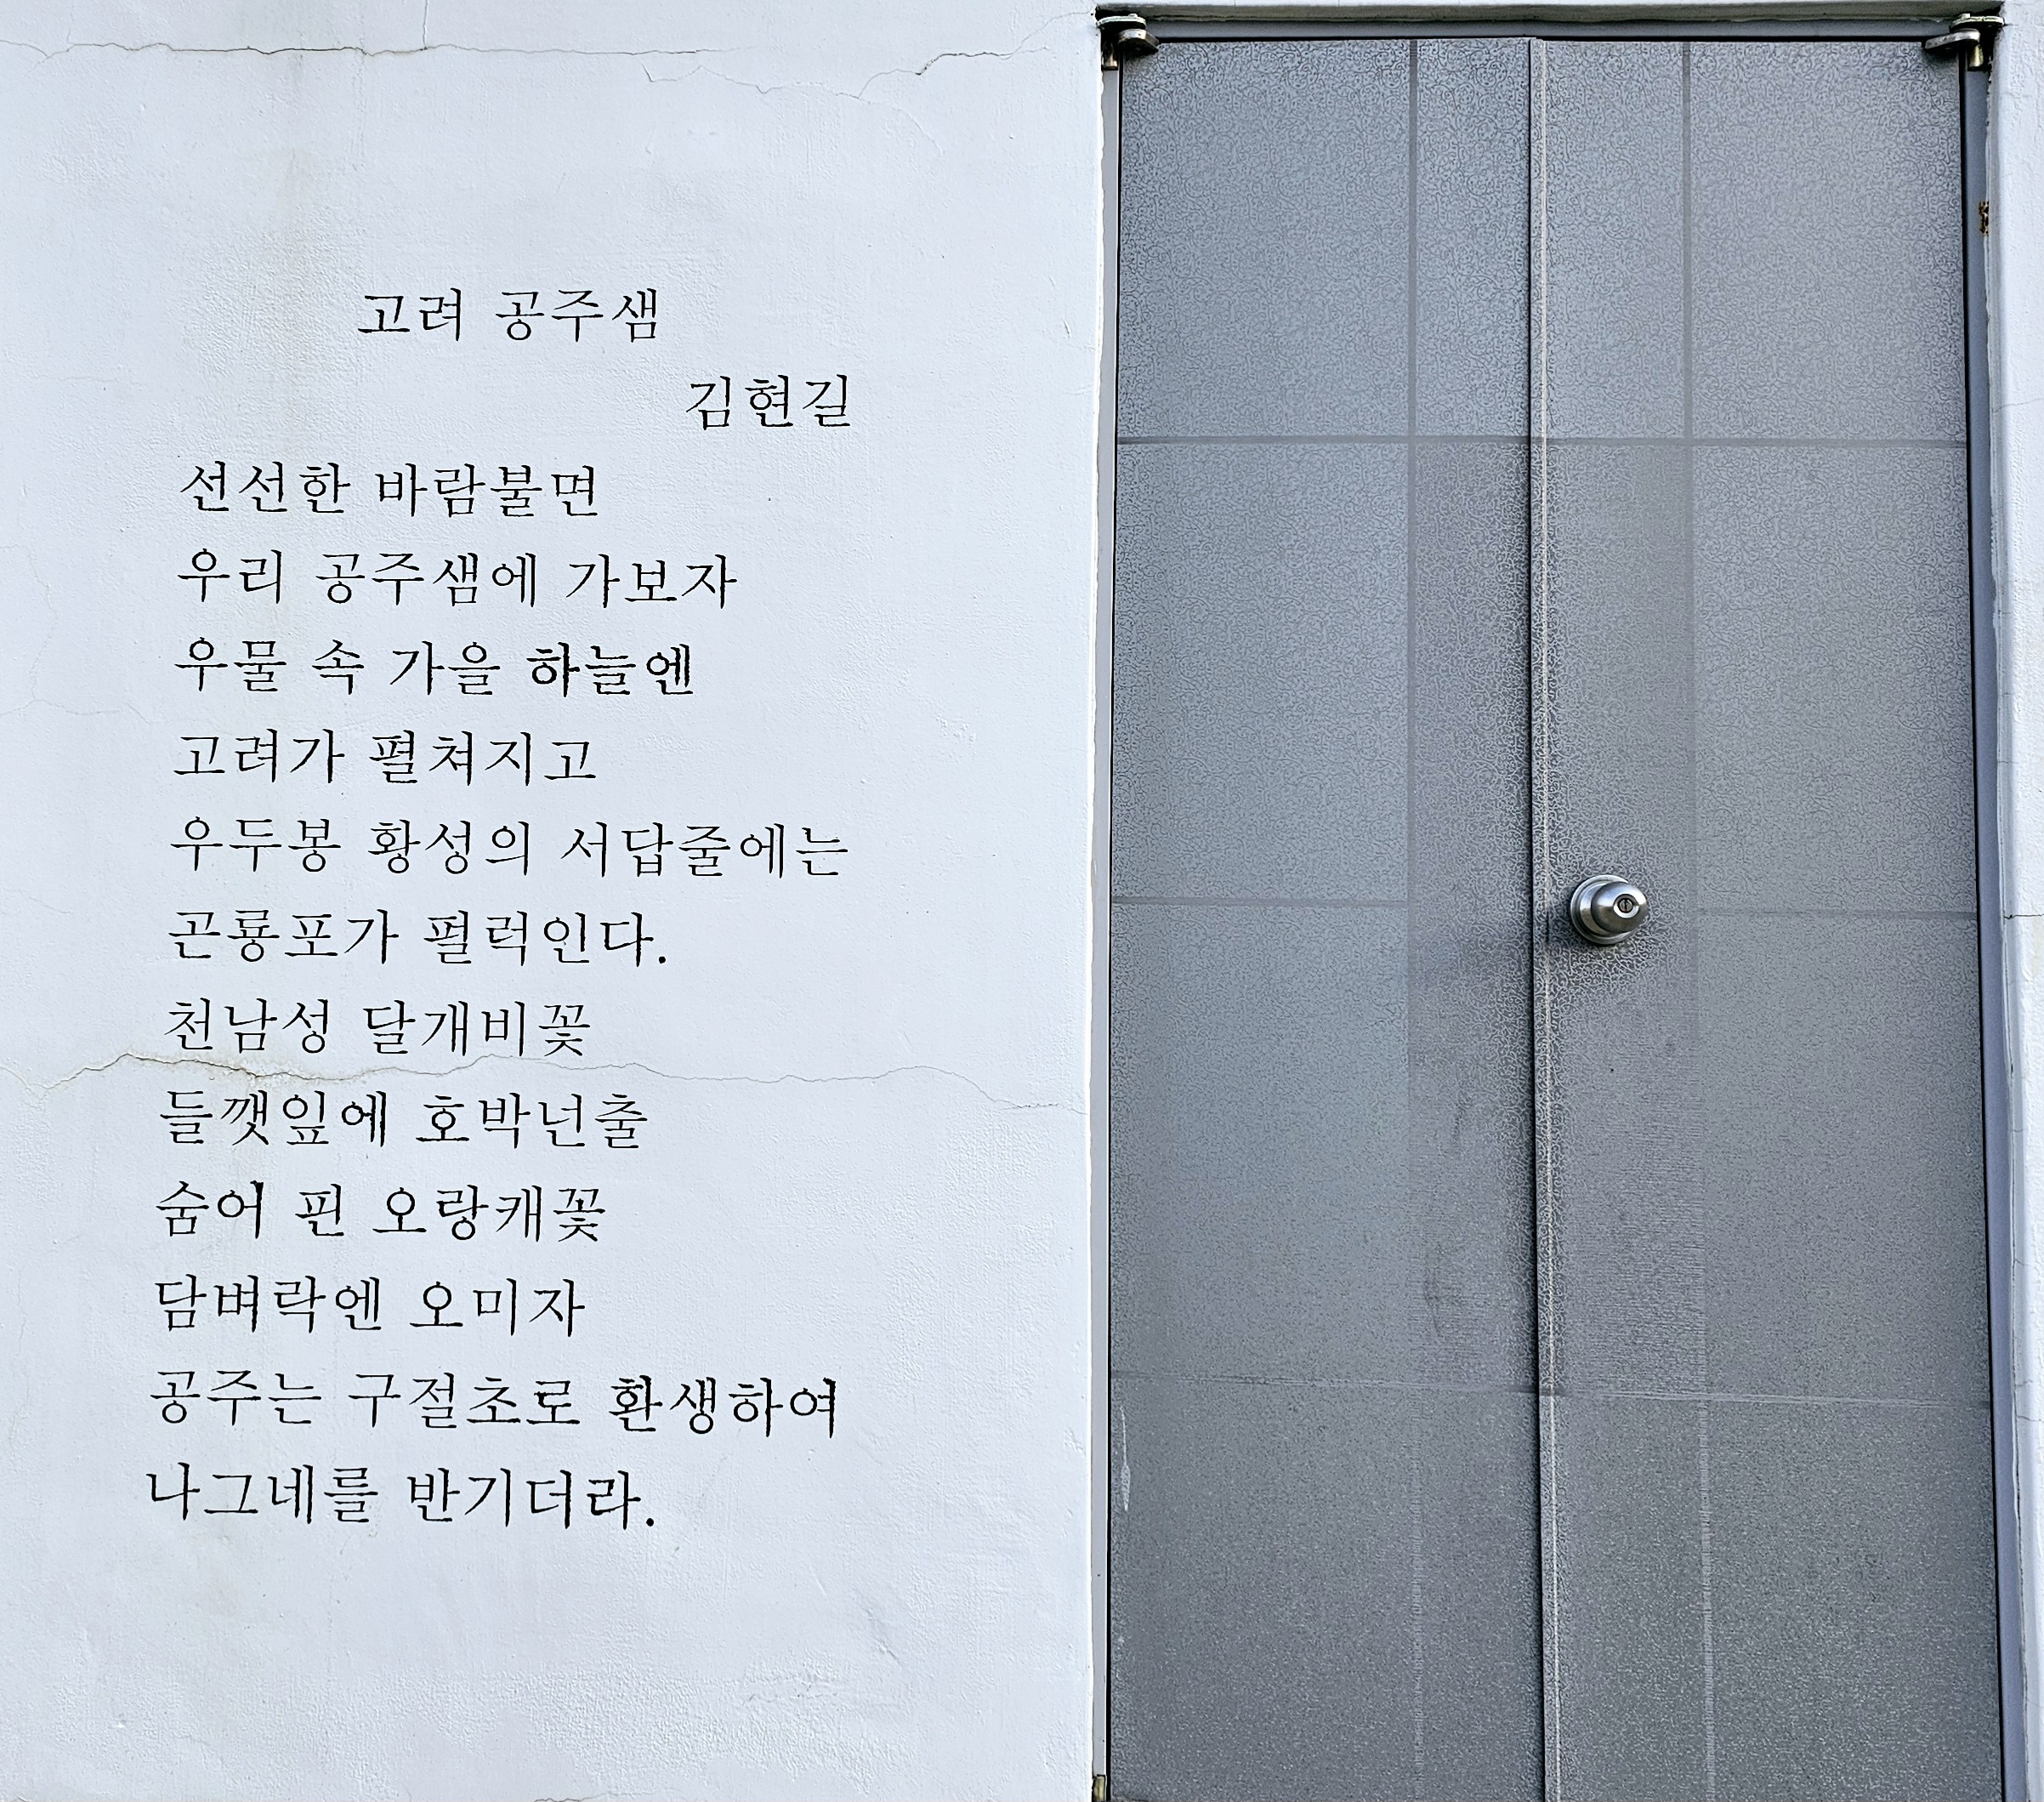 고려 공주샘
김현길
선선한 바람불면
우리 공주샘에 가보자
우물 속 가을 하늘엔
고려가 펼쳐지고
우두봉 황성의 서답줄에는
곤룡포가 펄럭인다.
천남성 달개비꽃
들깻잎에 호박넌출
숨어 핀 오랑캐꽃
담벼락엔 오미자
공주는 구절초로 환생하여
나그네를 반기더라.